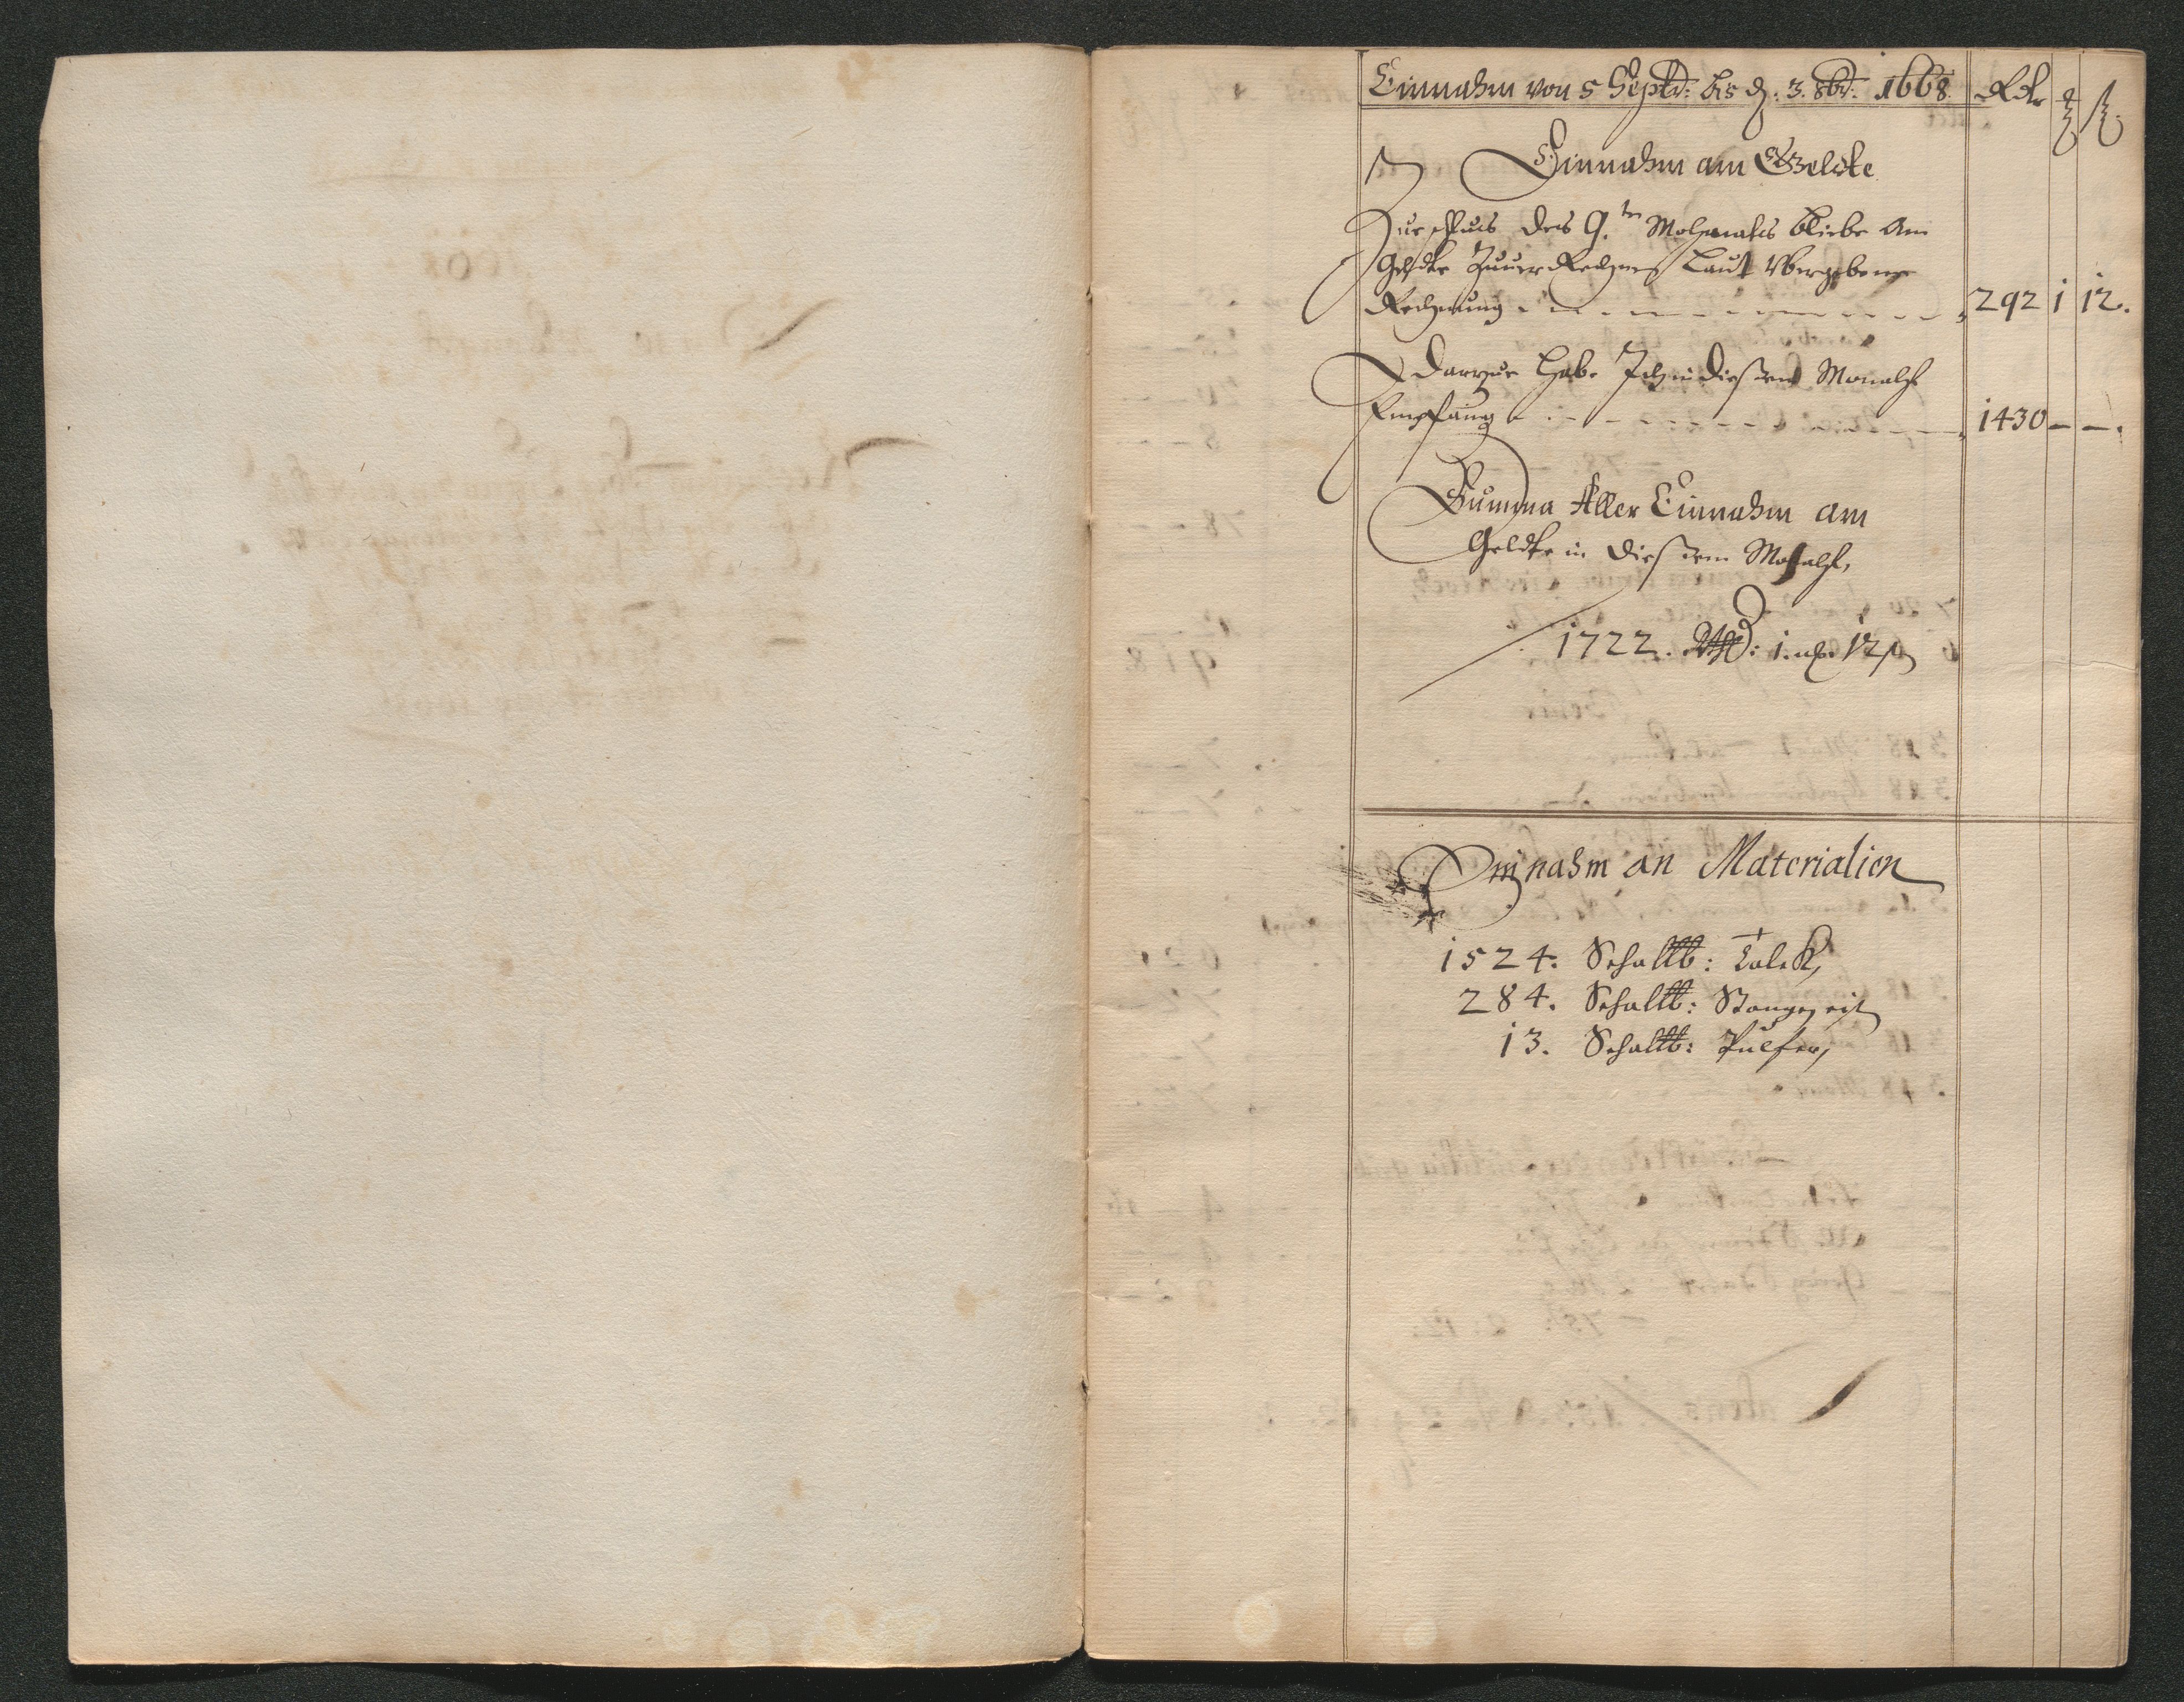 Einnahm von 5 Septbr: bis d. 3. 8br: 1668. Rdr
Einnahm am Geldte
Zueschus des 9.ten Mohnats bliebe Am
Geldte Zuuer Rechnen Laut vbergebene
Rechnung 292 1 12.
Darzue habe Ich in diesem Monaht
Empfang 1430 — —.
Summa Aller Einnahm am
Geldte in diesem Monaht,
1722. Rdr: 1. ort 12 ß
Einnahm an Materialien
1524. Schallb: Talck,
284. Schallb: Stangen
13. Schallb: Pulfer,